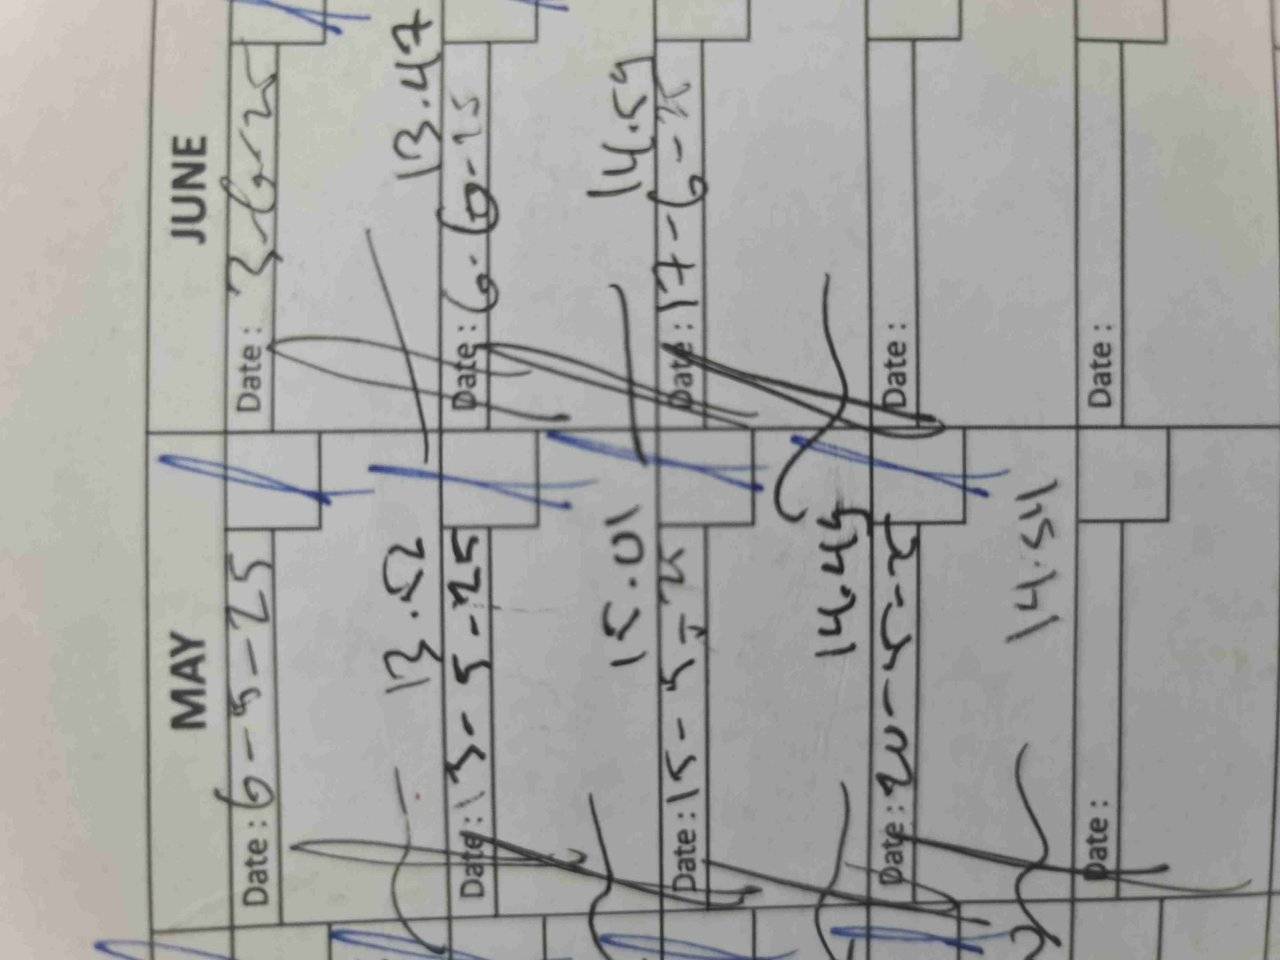 MAY
Date: 6-5-25
13.52
Date: 13-5-25
15.01
Date: 15-5-25
14.45
Date: 20-5-25
14.54
Date:
JUNE
Date: 3-6-25
13.47
Date: 6-6-25
14.59
Date: 17-6-25
Date:
Date: